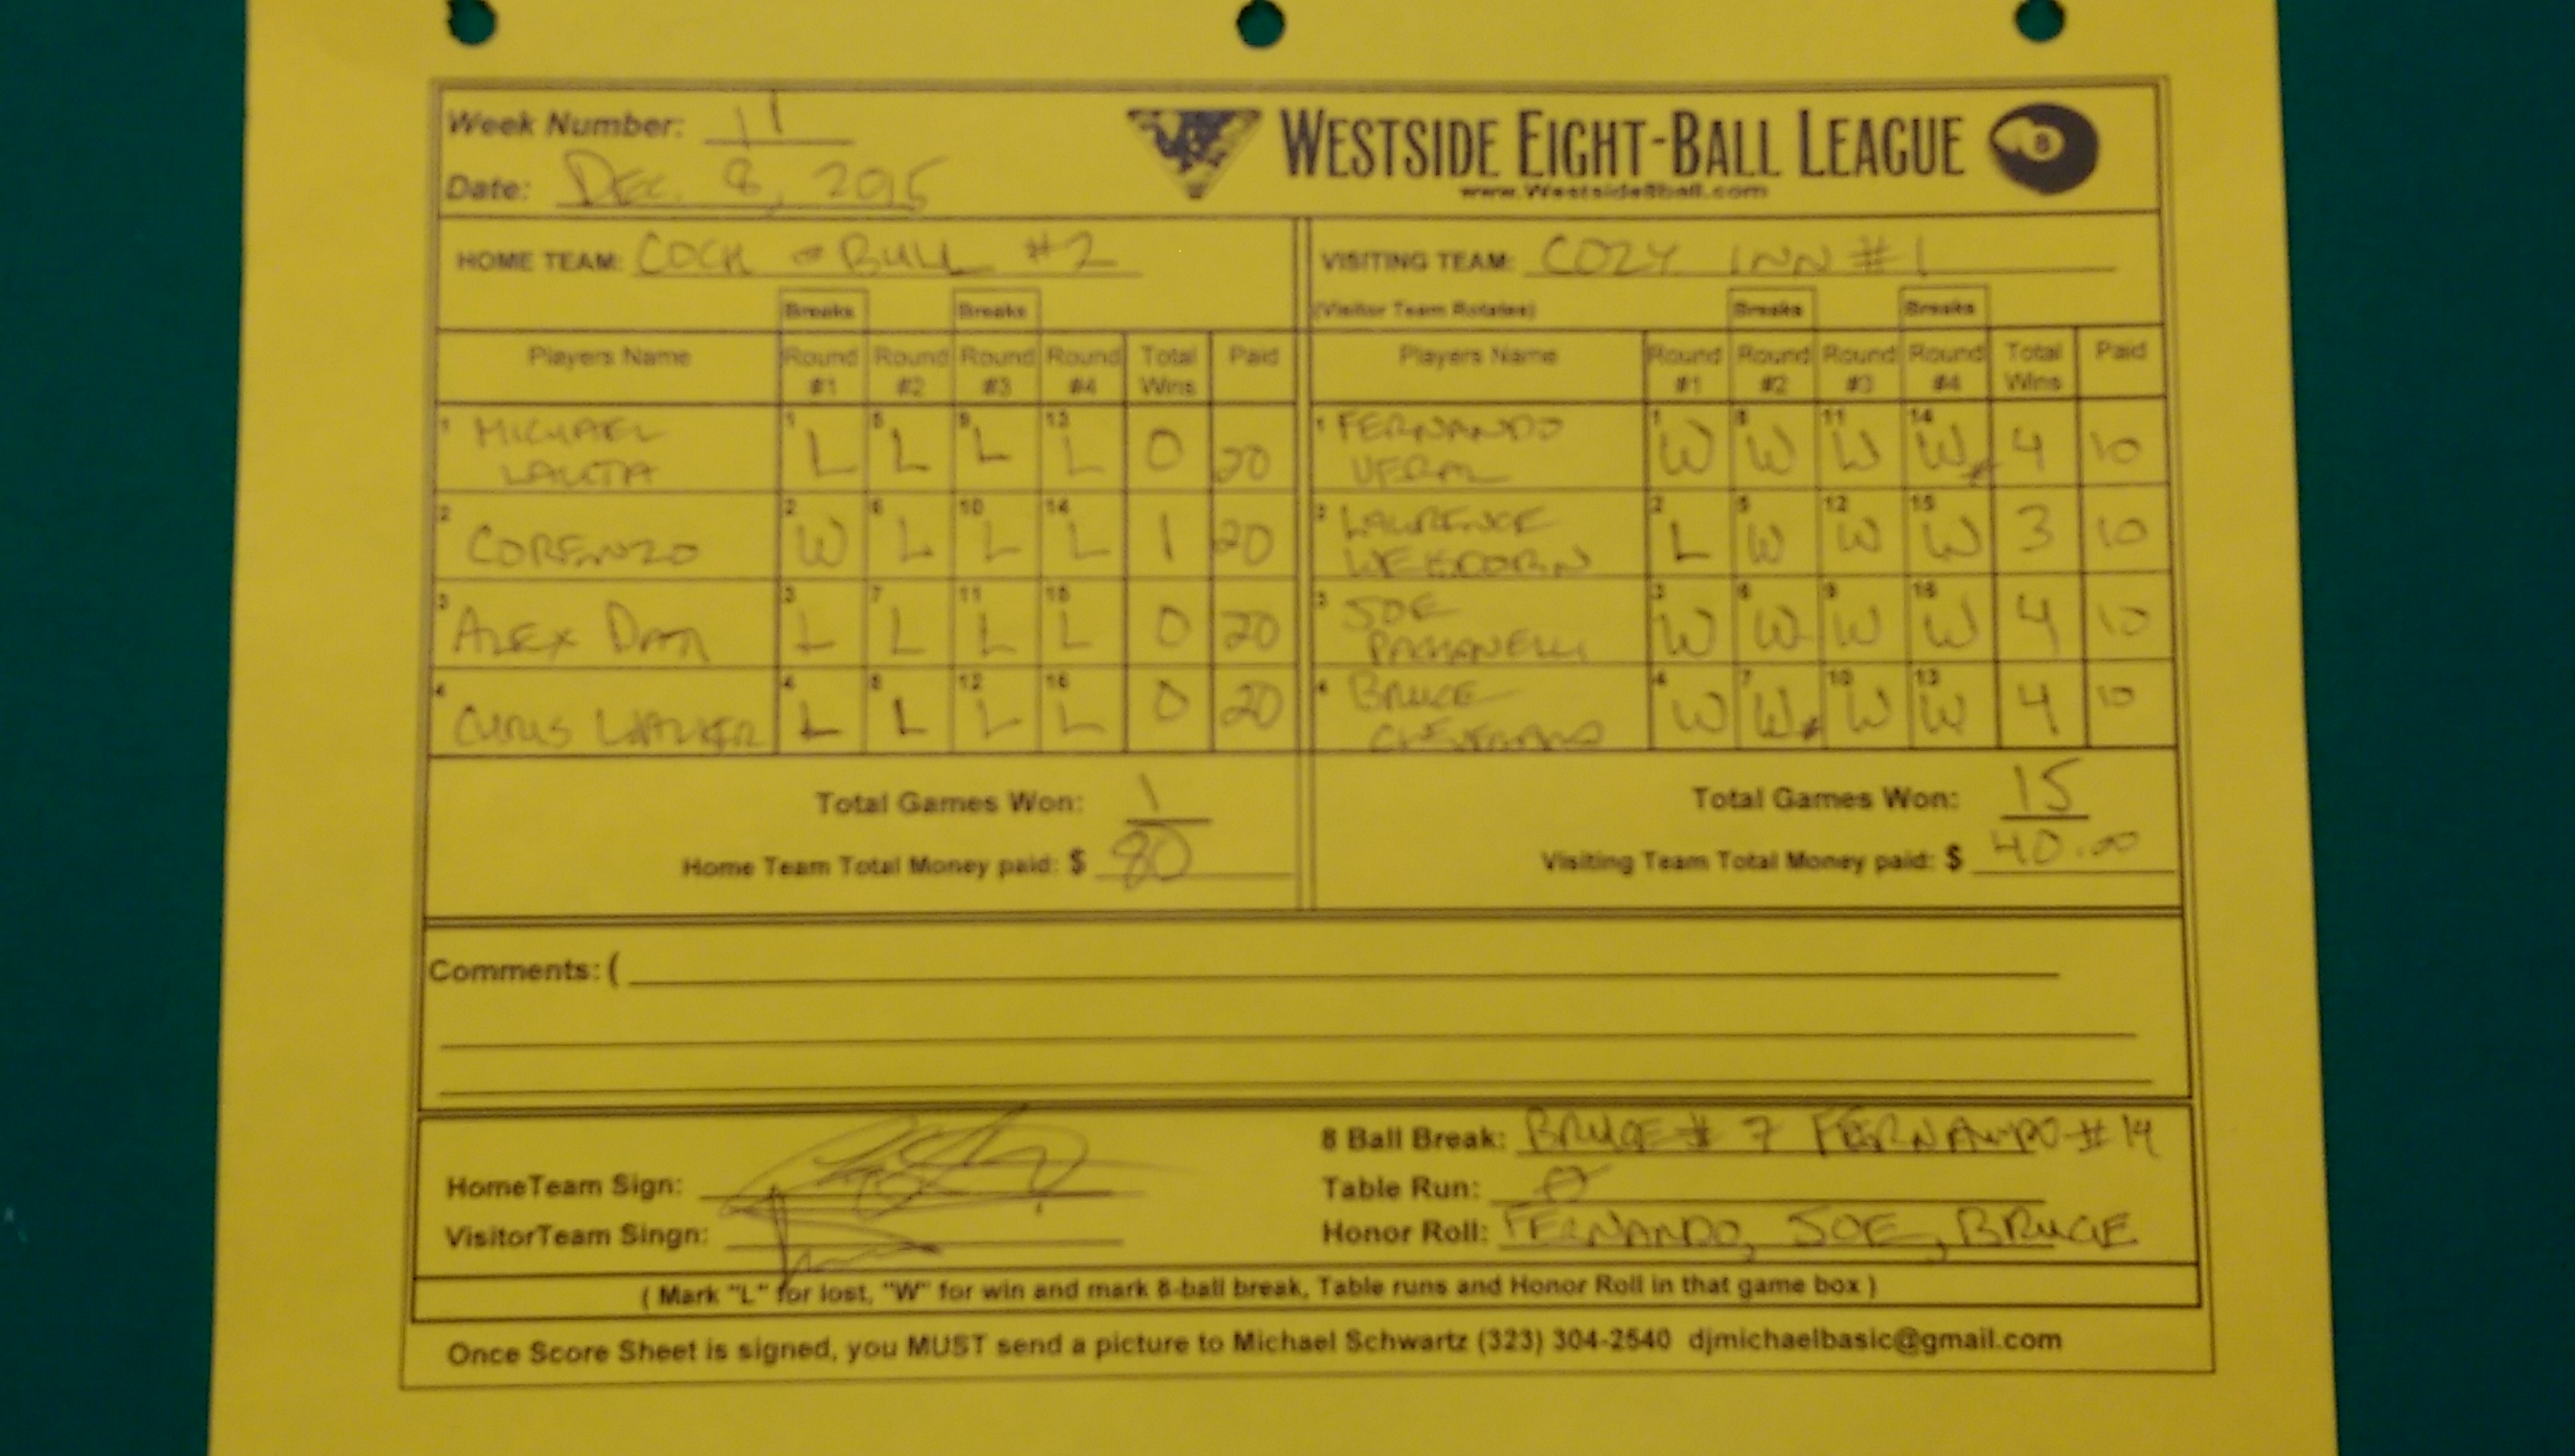 Week Number: 11
Date: DEC. 8, 2015
WESTSIDE EIGHT-BALL LEAGUE
www.Westside8ball.com
8
HOME TEAM: COCK & BULL #2
VISITING TEAM: COZY INN #1
Breaks Breaks
(Visitor Team Rotates) Breaks Breaks
Players Name Round #1 Round #2 Round #3 Round #4 Total Wins Paid
Players Name Round #1 Round #2 Round #3 Round #4 Total Wins Paid
1 MICHAEL 1 L 5 L 9 L 13 L 0 20
1 FERNANDO 1 W 8 W 11 W 14 W 4 10
2 CORENZO 2 W 6 L 10 L 14 L 1 20
2 LAWRENCE 2 L 5 W 12 W 15 W 3 10
3 ALEX 3 L 7 L 11 L 15 L 0 20
3 JOE 3 W 6 W 9 W 16 W 4 10
4 CHRIS WALKER 4 L 8 L 12 L 16 L 0 20
4 BRUCE CLEVELAND 4 W 7 W 10 W 13 W 4 10
Total Games Won: 1
Total Games Won: 15
Home Team Total Money paid: $ 80
Visiting Team Total Money paid: $ 40.00
Comments: (
HomeTeam Sign:
VisitorTeam Singn:
8 Ball Break: BRUCE # 7 FERNANDO # 14
Table Run: 0
Honor Roll: FERNANDO, JOE, BRUCE
( Mark "L" for lost, "W" for win and mark 8-ball break, Table runs and Honor Roll in that game box )
Once Score Sheet is signed, you MUST send a picture to Michael Schwartz (323) 304-2540 djmichaelbasic@gmail.com